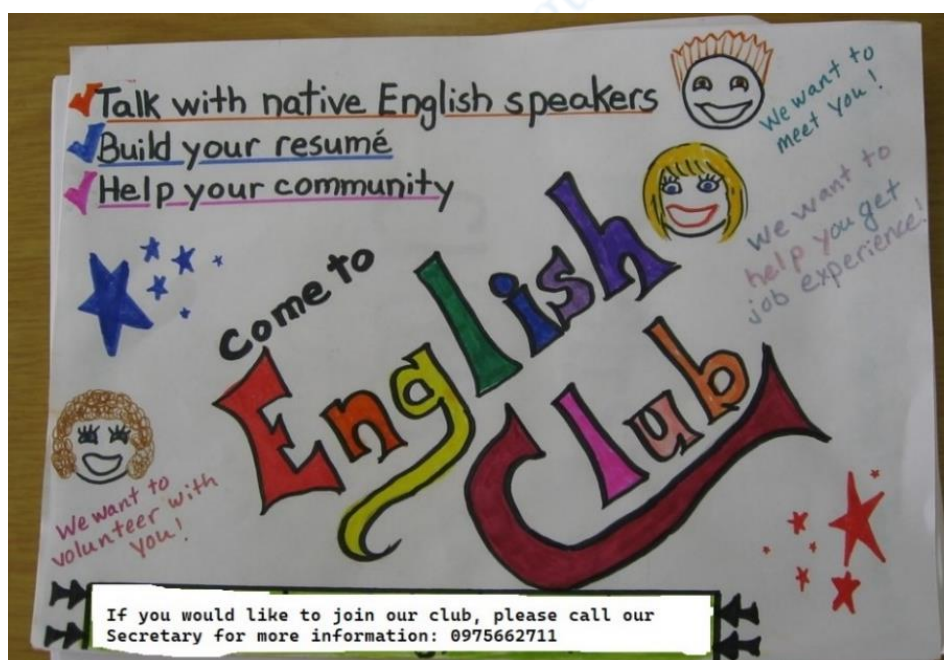 Talk with native English speakers
Build your resumé
Help your community
We want to
meet you!
We want to
help you get
job experience!
Come to
English
Club
We want to
volunteer with
you!
If you would like to join our club, please call our
Secretary for more information: 0975662711